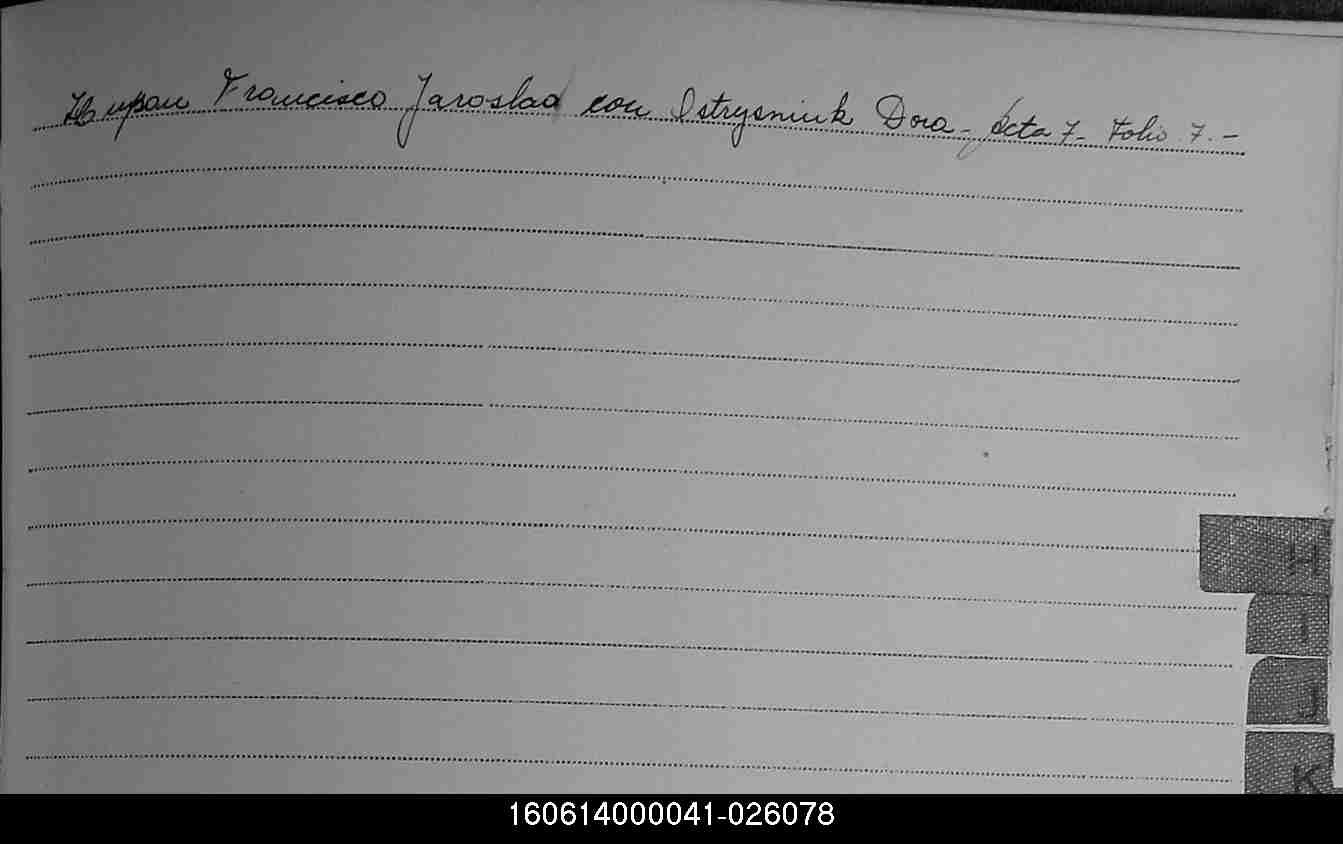 Hupau Francisco Jaroslao con Ostrysniuk Dora - Acta 7 - Folio 7. -
H
I
J
K
160614000041-026078